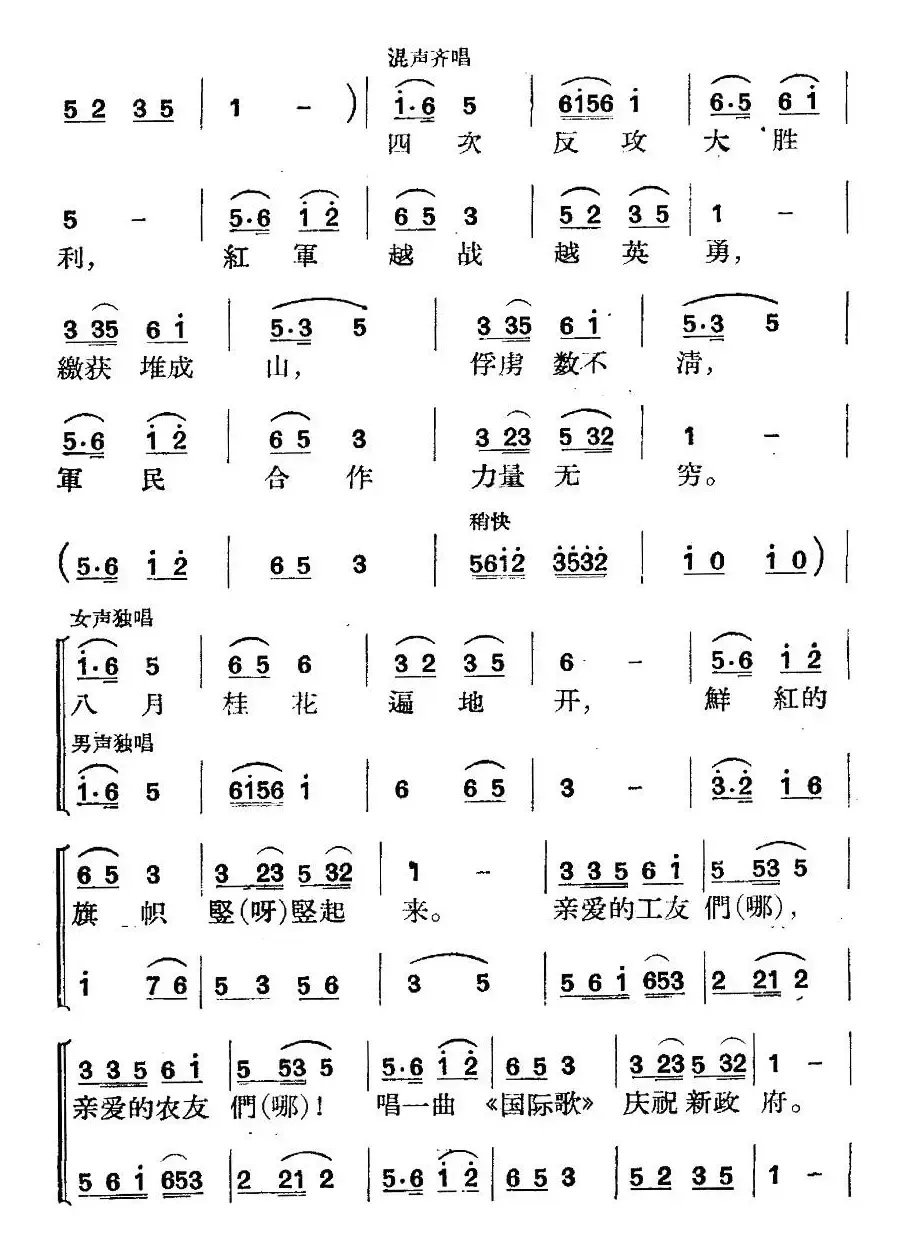 混声齐唱
5 2 3 5 | 1 – ) | i·6 5 | 6i56 i | 6·5 6 i |
四 次 反 攻 大 胜
5 – | 5·6 i 2̇ | 6 5 3 | 5 2 3 5 | 1 – |
利, 紅 軍 越 战 越 英 勇,
3 35 6 i | 5·3 5 | 3 35 6 i | 5·3 5 |
繳获 堆成 山, 俘虏 数不 清,
5·6 i 2̇ | 6 5 3 | 3 23 5 32 | 1 – |
軍 民 合 作 力量 无 穷。
稍快
( 5·6 i 2̇ | 6 5 3 | 56i2̇ 3̇5̇3̇2̇ | i 0 i 0 ) |
女声独唱
i·6 5 | 6 5 6 | 3 2 3 5 | 6 – | 5·6 i 2̇ |
八 月 桂 花 遍 地 开, 鮮 紅的
男声独唱
i·6 5 | 6i56 i | 6 6 5 | 3 – | 3̇·2̇ i 6 |
6 5 3 | 3 23 5 32 | 1 – | 3 3 5 6 i | 5 53 5 |
旗 帜 竪(呀)竪起 来。 亲爱的工友 們(哪),
i 7 6 | 5 3 5 6 | 3 5 | 5 6 i 653 | 2 21 2 |
3 3 5 6 i | 5 53 5 | 5·6 i 2̇ | 6 5 3 | 3 23 5 32 | 1 – |
亲爱的农友 們(哪)! 唱一曲 《国际歌》 庆祝新政 府。
5 6 i 653 | 2 21 2 | 5·6 i 2̇ | 6 5 3 | 5 2 3 5 | 1 – |